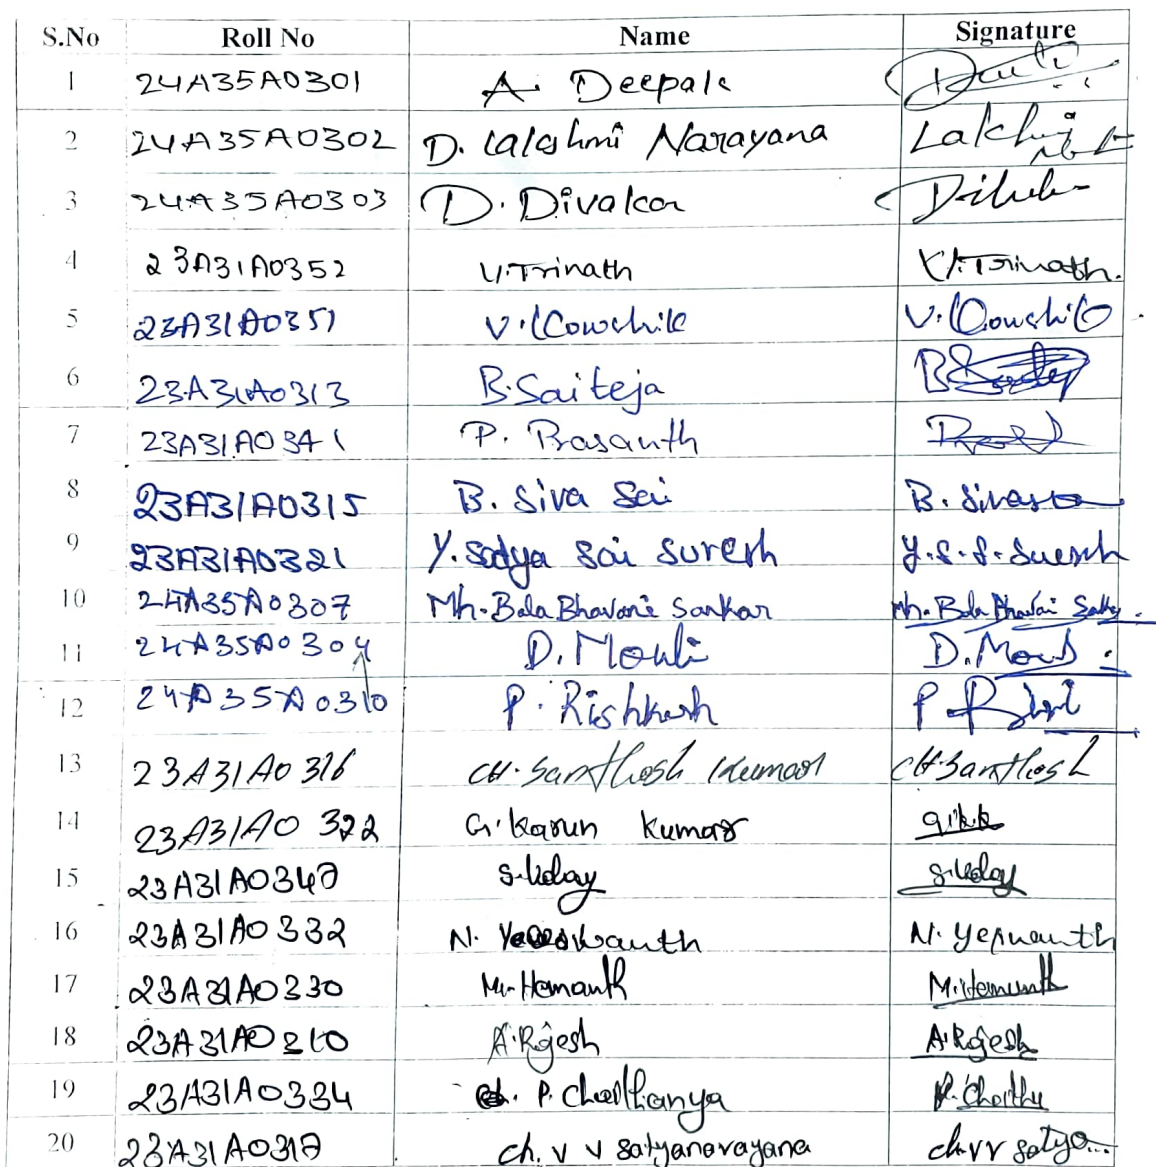 S.No Roll No Name Signature
1 24A35A0301 A. Deepak
2 24A35A0302 D. Lakshmi Narayana Lakshmi
3 24A35A0303 D. Divakar
4 23A31A0352 V.Trinath V.Trinath.
5 23A31A0351 V.Kowshik V.Kowshik
6 23A31A0313 B.Saiteja
7 23A31A0341 P. Prasanth
8 23A31A0315 B. Siva Sai B. Sivasa
9 23A31A0321 Y. Satya Sai Suresh Y.S.S.Suresh
10 24A35A0307 Mh. Bala Bhavani Sankar Mh. Bala Bhavani
11 24A35A0304 D. Mouli D.Mouli
12 24A35A0310 P. Rishkesh P
13 23A31A0316 CH. Santhosh Kumar CH.Santhosh
14 23A31A0322 G. Karun Kumar G.K.K
15 23A31A0347 S.Uday S.Uday
16 23A31A0332 N. N. Yeswanth
17 23A31A0330 M. Hemanth M.Hemanth
18 23A31A0310 A.Rajesh A.Rajesh
19 23A31A0334 P. Chaithanya P. Chaithu
20 23A31A0317 Ch. V V Satyanarayana Ch.VV Satya...